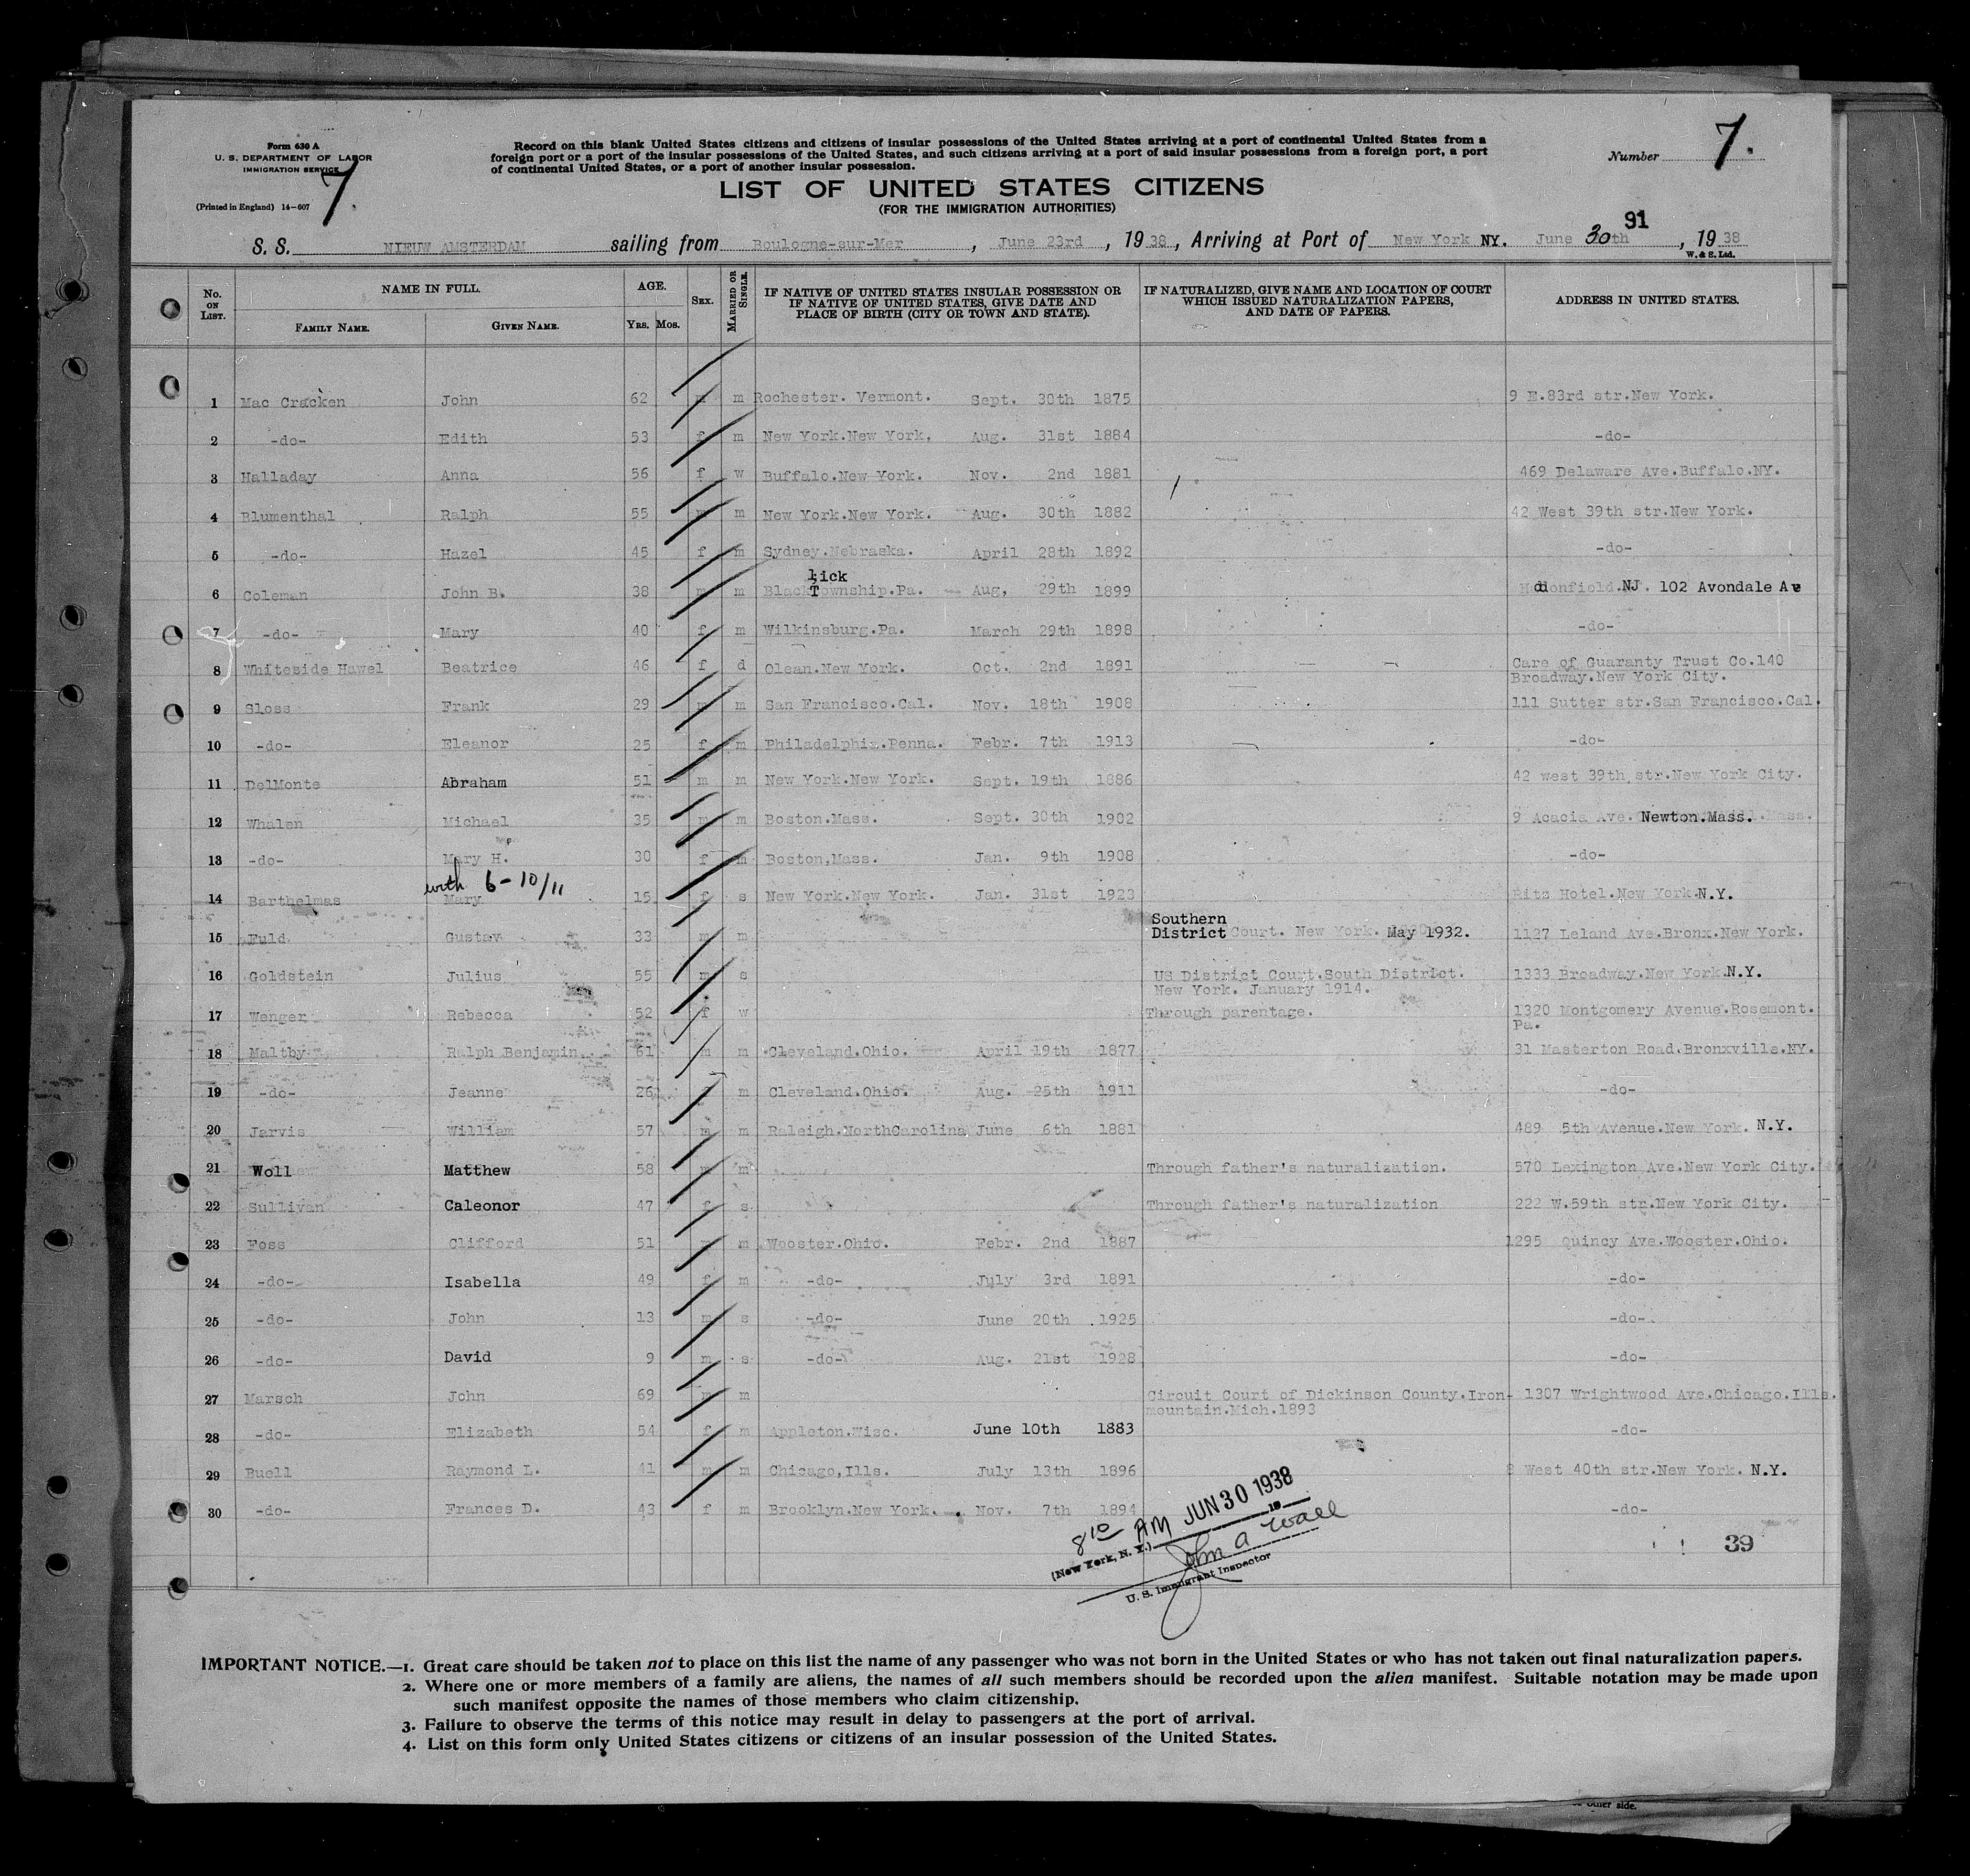 Form 630 A
U. S. DEPARTMENT OF LABOR
IMMIGRATION SERVICE
(Printed in England) 14-607
7.
Record on this blank United States citizens and citizens of insular possessions of the United States arriving at a port of continental United States from a
foreign port or a port of the insular possessions of the United States, and such citizens arriving at a port of said insular possessions from a foreign port, a port
of continental United States, or a port of another insular possession.
Number 7.
LIST OF UNITED STATES CITIZENS
(FOR THE IMMIGRATION AUTHORITIES)
91
S. S. NIEUW AMSTERDAM sailing from Boulogne-sur-Mer, June 23rd, 1938, Arriving at Port of New York NY. June 30th, 1938
W. & S. Ltd.
No. ON LIST. NAME IN FULL. FAMILY NAME. GIVEN NAME. AGE. YRS. MOS. SEX. MARRIED OR SINGLE. IF NATIVE OF UNITED STATES INSULAR POSSESSION OR IF NATIVE OF UNITED STATES, GIVE DATE AND PLACE OF BIRTH (CITY OR TOWN AND STATE). IF NATURALIZED, GIVE NAME AND LOCATION OF COURT WHICH ISSUED NATURALIZATION PAPERS, AND DATE OF PAPERS. ADDRESS IN UNITED STATES.
1 Mac Cracken John 62 m m Rochester. Vermont. Sept. 30th 1875 9 E.83rd str.New York.
2 -do- Edith 53 f m New York.New York. Aug. 31st 1884 -do-
3 Halladay Anna 56 f w Buffalo.New York. Nov. 2nd 1881 469 Delaware Ave.Buffalo.NY.
4 Blumenthal Ralph 55 m m New York.New York. Aug. 30th 1882 42 West 39th str.New York.
5 -do- Hazel 45 f m Sydney.Nebraska. April 28th 1892 -do-
lick
6 Coleman John B. 38 m m Black Township.Pa. Aug, 29th 1899 Haddonfield.NJ. 102 Avondale Ave
7 -do- Mary 40 f m Wilkinsburg.Pa. March 29th 1898 -do-
8 Whiteside Hawel Beatrice 46 f d Olean.New York. Oct. 2nd 1891 Care of Guaranty Trust Co.140
Broadway.New York City.
9 Sloss Frank 29 m m San Francisco.Cal. Nov. 18th 1908 111 Sutter str.San Francisco.Cal.
10 -do- Eleanor 25 f m Philadelphia.Penna. Febr. 7th 1913 -do-
11 DelMonte Abraham 51 m m New York.New York. Sept. 19th 1886 42 west 39th str.New York City.
12 Whalen Michael 35 m m Boston.Mass. Sept. 30th 1902 9 Acacia Ave. Newton.Mass.
13 -do- Mary H. 30 f m Boston,Mass. Jan. 9th 1908 -do-
with 6-10/11
14 Barthelmas Mary 15 f s New York.New York. Jan. 31st 1923 Ritz Hotel.New York.N.Y.
Southern
15 Fuld Gustav 33 m m District Court. New York. May 1932. 1127 Leland Ave.Bronx.New York.
16 Goldstein Julius 55 m s US District Court.South District. 1333 Broadway.New York.N.Y.
New York. January 1914.
17 Wenger Rebecca 52 f w Through parentage. 1320 Montgomery Avenue.Rosemont.
Pa.
18 Maltby Ralph Benjamin 61 m m Cleveland.Ohio. April 19th 1877 31 Masterton Road.Bronxville.NY.
19 -do- Jeanne 26 f m Cleveland.Ohio. Aug. 25th 1911 -do-
20 Jarvis William 57 m m Raleigh.NorthCarolina June 6th 1881 489 5th Avenue.New York. N.Y.
21 Woll Matthew 58 m m Through father's naturalization. 570 Lexington Ave.New York City.
22 Sullivan Caleonor 47 f s Through father's naturalization 222 W.59th str.New York City.
23 Foss Clifford 51 m m Wooster.Ohio. Febr. 2nd 1887 1295 Quincy Ave.Wooster.Ohio.
24 -do- Isabella 49 f m -do- July 3rd 1891 -do-
25 -do- John 13 m s -do- June 20th 1925 -do-
26 -do- David 9 m s -do- Aug. 21st 1928 -do-
27 Marsch John 69 m m Circuit Court of Dickinson County.Iron- 1307 Wrightwood Ave.Chicago.Ills.
mountain.Mich.1893
28 -do- Elizabeth 54 f m Appleton.Wisc. June 10th 1883 -do-
29 Buell Raymond L. 41 m m Chicago,Ills. July 13th 1896 8 West 40th str.New York. N.Y.
30 -do- Frances D. 43 f m Brooklyn.New York. Nov. 7th 1894 -do-
8 10 AM JUN 30 1938
(New York, N. Y.) 19
John A Wall
U. S. Immigrant Inspector
39
IMPORTANT NOTICE.—1. Great care should be taken not to place on this list the name of any passenger who was not born in the United States or who has not taken out final naturalization papers.
2. Where one or more members of a family are aliens, the names of all such members should be recorded upon the alien manifest. Suitable notation may be made upon
such manifest opposite the names of those members who claim citizenship.
3. Failure to observe the terms of this notice may result in delay to passengers at the port of arrival.
4. List on this form only United States citizens or citizens of an insular possession of the United States.
other side.